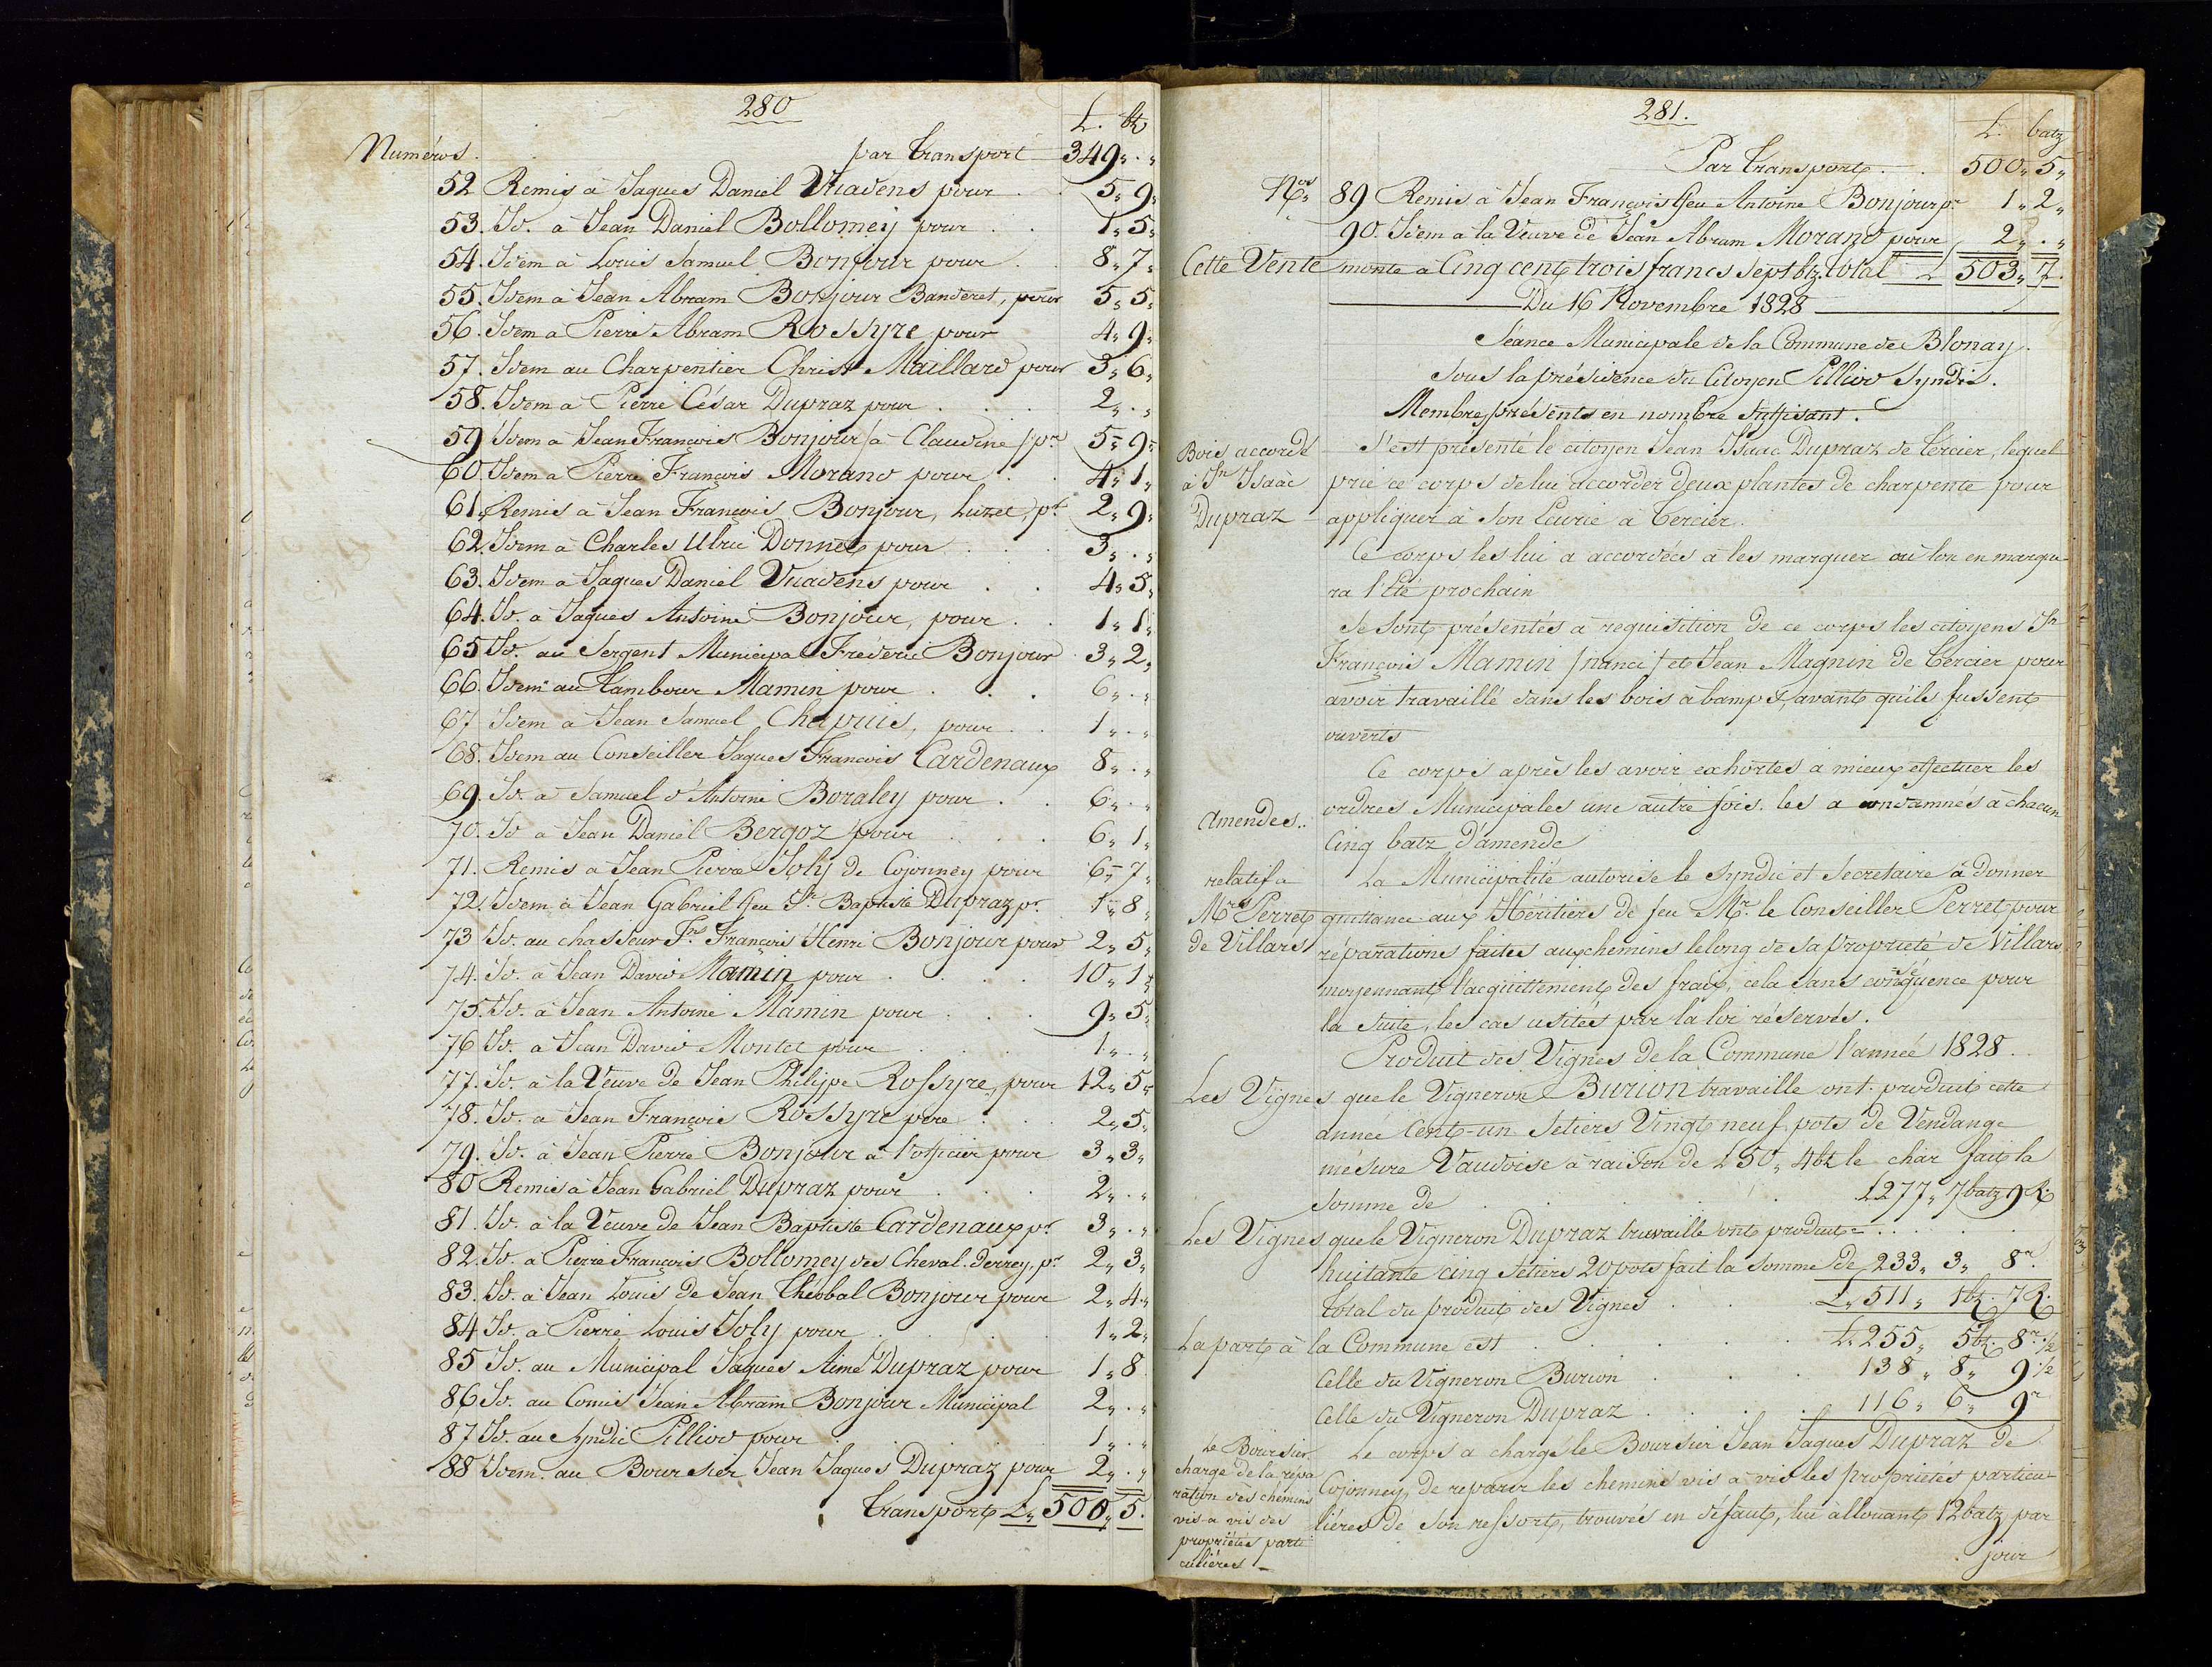 280
L. btz
Numéros. par transport 349 „ . „
52 Remis à Jaques Daniel Vuadens pour . . 5 „ 9 „
53. Id. à Jean Daniel Bollomey pour . . 1 „ 5 „
54. Idem à Louis Samuel Bonjour pour . . 8 „ 7 „
55. Idem à Jean Abram Bonjour Banderet, pour 5 „ 5 „
56. Idem à Pierre Abram Rossyre pour 4 „ 9 „
57. Idem au Charpentier Christ Maillard pour 3 „ 6 „
58. Idem à Pierre César Dupraz pour . . . 2 „ . „
59 Idem à Jean François Bonjour / à Claudine / pr 5 „ 9 „
60. Idem à Pierre François Morand pour . . 4 „ 1 „
61. Remis à Jean François Bonjour, Luzet, pr 2 „ 9 „
62. Idem à Charles Ulric Donnet pour . . . 3 „ . „
63. Idem à Jaques Daniel Vuadens pour . . 4 „ 5 „
64. Id. à Jaques Antoine Bonjour, pour . . 1 „ 1 „
65 Id. au Sergent Municipal Fréderic Bonjour 3 „ 2 „
66. Idem au tambour Mamin pour . . . 6 „ . „
67 Idem à Jean Samuel Chapuis, pour . . 1 „ . „
68. Idem au Conseiller Jaques François Cardenaux 8 „ . „
69. Id. à Samuel d'Antoine Boraley pour . . 6 „ . „
70. Id à Jean Daniel Bergoz pour . . . 6 „ 1 „
71. Remis à Jean Pierre Joly de Cojonney pour 6 „ 7 „
72. Idem à Jean Gabriel feu Jn Baptiste Dupraz pr. 1 „ 8 „
73 Id. au chasseur Jn François Henri Bonjour pour 2 „ 5 „
74. Id. à Jean David Mamin pour . . . . 10 „ 1 „
75. Id. à Jean Antoine Mamin pour . . . 9 „ 5 „
76 Id. à Jean David Montet pour . . . 1 „ . „
77. Id. à la Veuve de Jean Philippe Rossyre, pour 12 „ 5 „
78. Id. à Jean François Rossyre père . . . 2 „ 5 „
79. Id. à Jean Pierre Bonjour à l'officier pour 3 „ 3 „
80 Remis à Jean Gabriel Dupraz pour . . . 2 „ . „
81. Id. à la Veuve de Jean Baptiste Cardenaux pr 3 „ . „
82. Id. à Pierre François Bollomey des Cheval-derrey, pr 2 „ 3 „
83. Id. à Jean Louis de Jean Théobal Bonjour pour 2 „ 4 „
84 Id. à Pierre Louis Joly pour . . . . 1 „ 2 „
85 Id. au Municipal Jaques Aimé Dupraz pour 1 „ 8
86 Id. au Comis Jean Abram Bonjour Municipal 2 „ . „
87 Id. au Syndic Pilliod pour . . . . 1 „ . „
88 Idem. au Boursier Jean Jaques Dupraz pour 2 „ . „
transport L „ 500 „ 5.
281.
L. batz
Par transport . . 500 „ 5 „
Nos. 89 Remis à Jean François feu Antoine Bonjour pr 1 „ 2 „
90. Idem à la Veuve de Jean Abram Morand pour 2 „ . „
Cette Vente monte à Cinq cent trois francs sept btz. total L 503 „ 7.
Du 16 Novembre 1828
Séance Municipale de la Commune de Blonay.
Sous la présidence du Citoyen Pilliod Syndic.
Membres présents en nombre suffisant.
Bois accordé à Jn Isaàc Dupraz
S'est présenté le citoyen Jean Isaac Dupraz de tercier, lequel
prie ce corps de lui accorder deux plantes de charpente pour
appliquer à son Ecurie à Tercier.
Ce corps les lui a accordées à les marquer où l'on en marque-
ra l'Eté prochain
Se sont présentés à requisition de ce corps les citoyens Jn
François Mamin / nanci / et Jean Magnin de Tercier pour
avoir travaillé dans les bois à bamps, avant qu'ils fussent
ouverts
Ce corps après les avoir exhortés à mieux effectuer les
ordres Municipales une autre fois. les a condamnés à chacun
Amendes..
Cinq batz d'amende
relatif à Mr Perret de Villars
La Municipalité autorise le Syndic et Secretaire à donner
quittance aux Héritiers de feu Mr. le Conseiller Perret pour
réparations faites aux chemins le long de sa propriété de Villars,
moyennant l'acquittement des fraix, cela sans conséquence pour
la suite, les cas usités par la loi réservés.
Produit des Vignes de la Commune l'année 1828.
Les Vignes que le Vigneron Burion travaille ont produit cette
année Cent-un Setiers Vingt neuf pots de Vendange
mésure Vaudoise à raison de L 50 „ 4 bz le chàr fait la
somme de . . . . L 277 „ 7 batz 9 R.
Les Vignes que le Vigneron Dupraz travaille ont produit . . . .
huitante cinq Setiers 20 pots fait la somme de 233 „ 3 „ 8 r.
total du produit des Vignes . . L „ 511 „ 1 bz. 7 R.
La part à la Commune est . . . . L. 255 „ 5 bz. 8 r. 1/2
Celle du Vigneron Burion . . . 138 „ 8 „ 9. 1/2
Celle du Vigneron Dupraz . . . . 116 „ 6 „ 9 r
Le Boursier chargé de la répa
ration des chemins
vis-à vis des
propriétés parti
culières
Le corps a chargé le Boursier Jean Jaques Dupraz de
Cojonney, de reparer les chemins vis à vis les propriétés particu-
lières de son ressort, trouvés en défaut, lui allouant 12 batz par
jour